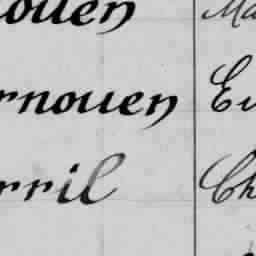 ouen Ma
rnouen Eu
rril Ch